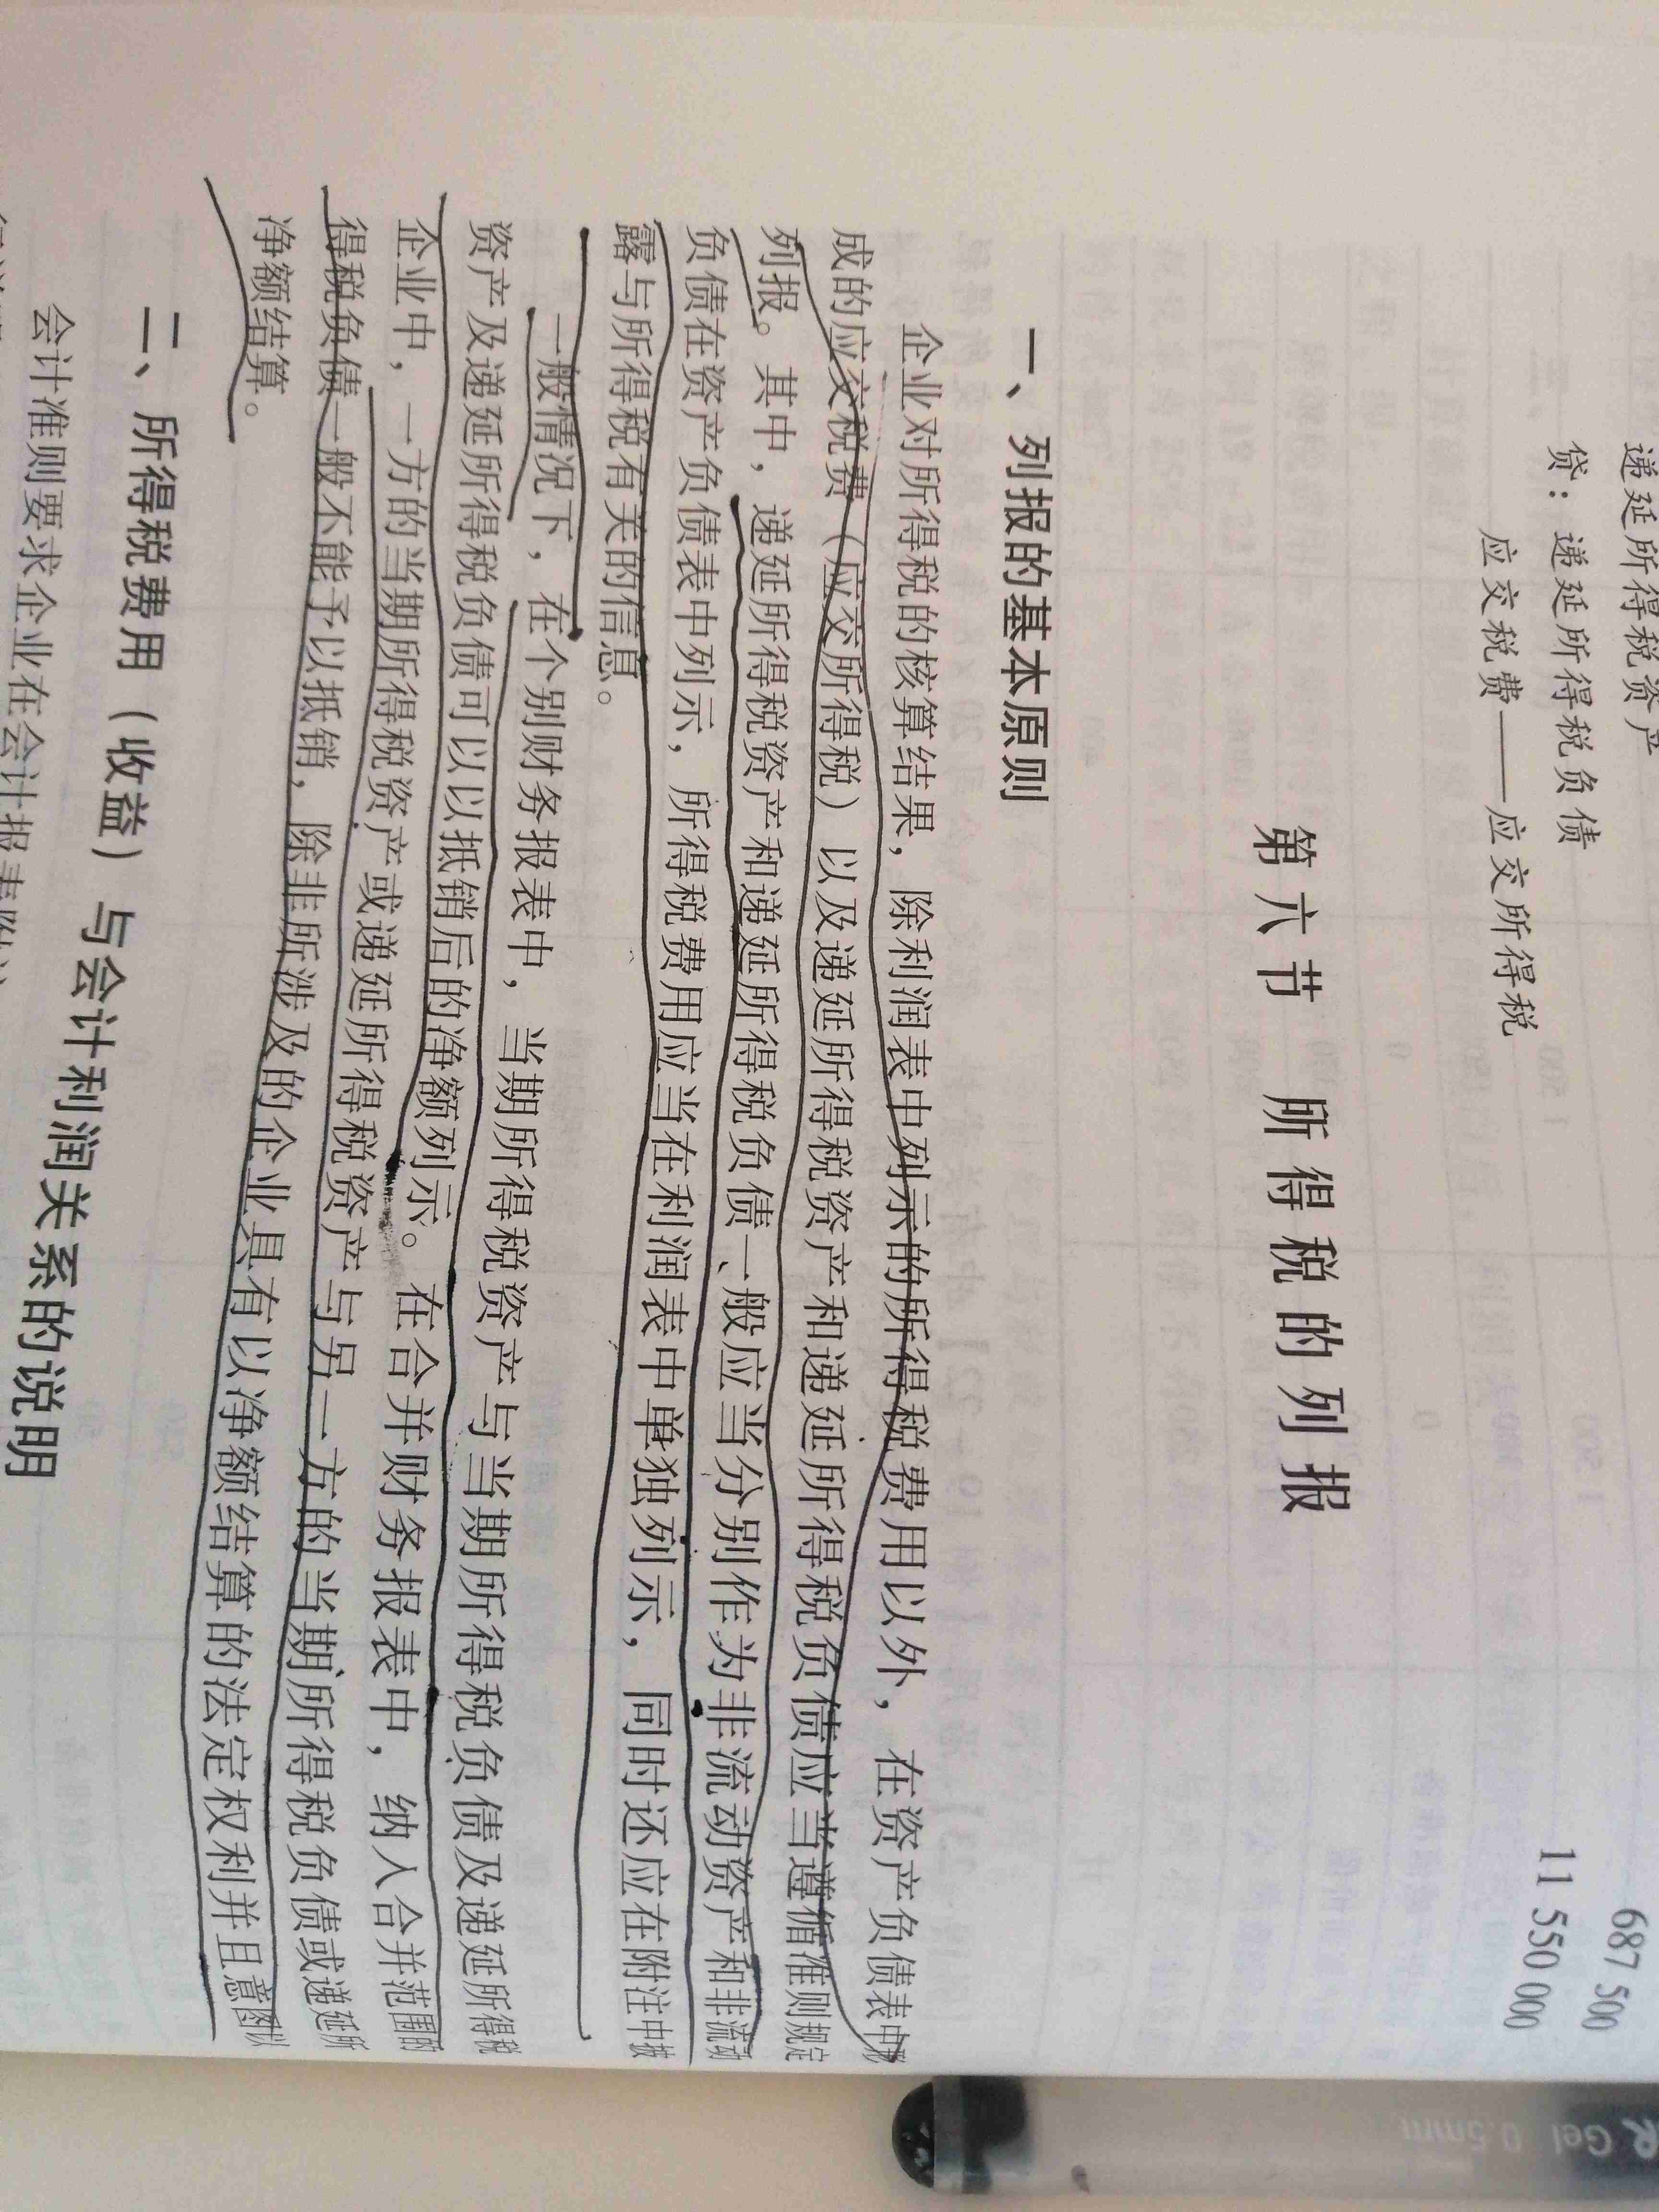 递延所得税资产 687 500
贷：递延所得税负债 11 550 000
应交税费——应交所得税
第六节 所得税的列报
一、列报的基本原则
企业对所得税的核算结果，除利润表中列示的所得税费用以外，在资产负债表中形
成的应交税费（应交所得税）以及递延所得税资产和递延所得税负债应当遵循准则规定
列报。其中，递延所得税资产和递延所得税负债一般应当分别作为非流动资产和非流动
负债在资产负债表中列示，所得税费用应当在利润表中单独列示，同时还应在附注中披
露与所得税有关的信息。
一般情况下，在个别财务报表中，当期所得税资产与当期所得税负债及递延所得税
资产及递延所得税负债可以以抵销后的净额列示。在合并财务报表中，纳入合并范围的
企业中，一方的当期所得税资产或递延所得税资产与另一方的当期所得税负债或递延所
得税负债一般不能予以抵销，除非所涉及的企业具有以净额结算的法定权利并且意图以
净额结算。
二、所得税费用（收益）与会计利润关系的说明
会计准则要求企业在会计报表附注
R Gel 0.5mm